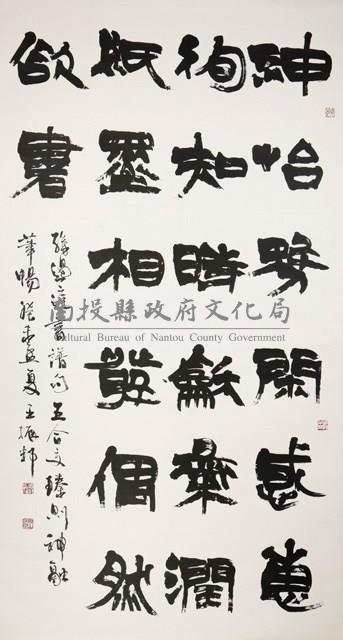 神怡務閑感惠
徇知時龢氣潤
紙墨相發偶然
欲書
孫過庭書譜句五合交臻則神融
筆暢 孟夏王振邦
南投縣政府文化局
Cultural Bureau of Nantou County Government